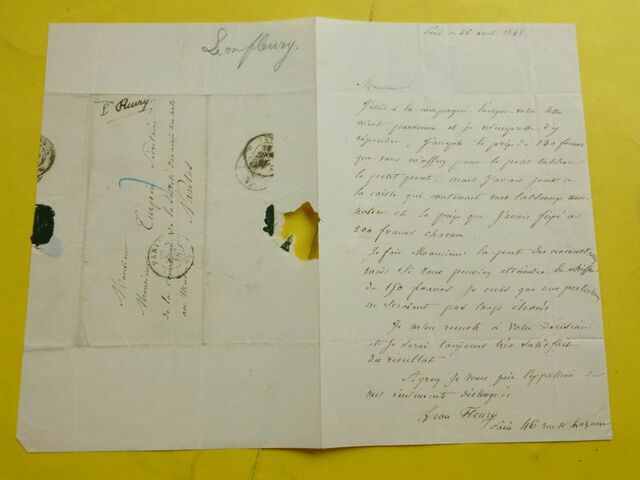 Leon fleury.
L. Fleury
Monsieur
Monsieur Turpin
de la commission de la société
au
Nantes
Paris ce 26 1848
Monsieur
J'étais à la campagne lorsque votre lettre
m'est parvenue et je m'empresse d'y
répondre. J'accepte le prix de 130 francs
que vous m'offrez pour le petit tableau
le petit pont, mais j'avais joint à
la caisse qui contenait mes tableaux une
notice et le prix que j'avais fixé à
200 francs chacun.
Je fais Monsieur la part des circonstances
mais si vous pouviez atteindre le chiffre
de 150 francs je crois que mes prétentions
ne seraient pas trop élevées
Je m'en remets à votre décision
et je serai toujours très satisfait
du resultat
Agréez je vous prie l'expression de
mes sentiments distingués
Leon Fleury
Paris 46 rue St Lazare